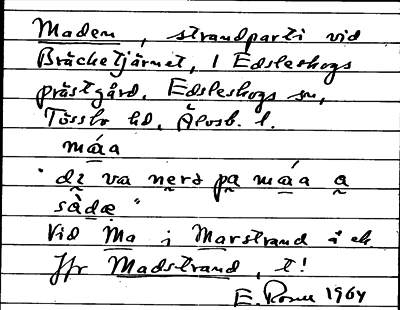 Maden, strandparti vid
Bräcketjärnet, 1 Edsleskogs
prästgård. Edsleskogs sn,
Tössbo hd. Älvsb. l.
máa
"di va nerə pa máa a
sàdæ"
Vid Ma i Marstrand å ek
Jfr Madstrand, t!
E. 1964